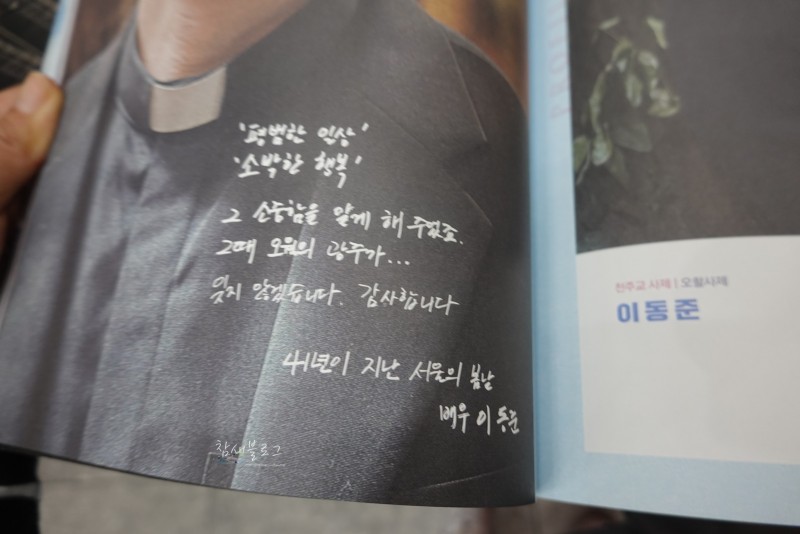 '평범한 일상'
'소박한 행복'
그 소중함을 알게 해 주었죠.
그때 오월의 광주가...
잊지 않겠습니다. 감사합니다
41년이 지난 서울의 봄날
배우 이동준
참새블로그
천주교 사제 | 오철사제
이동준